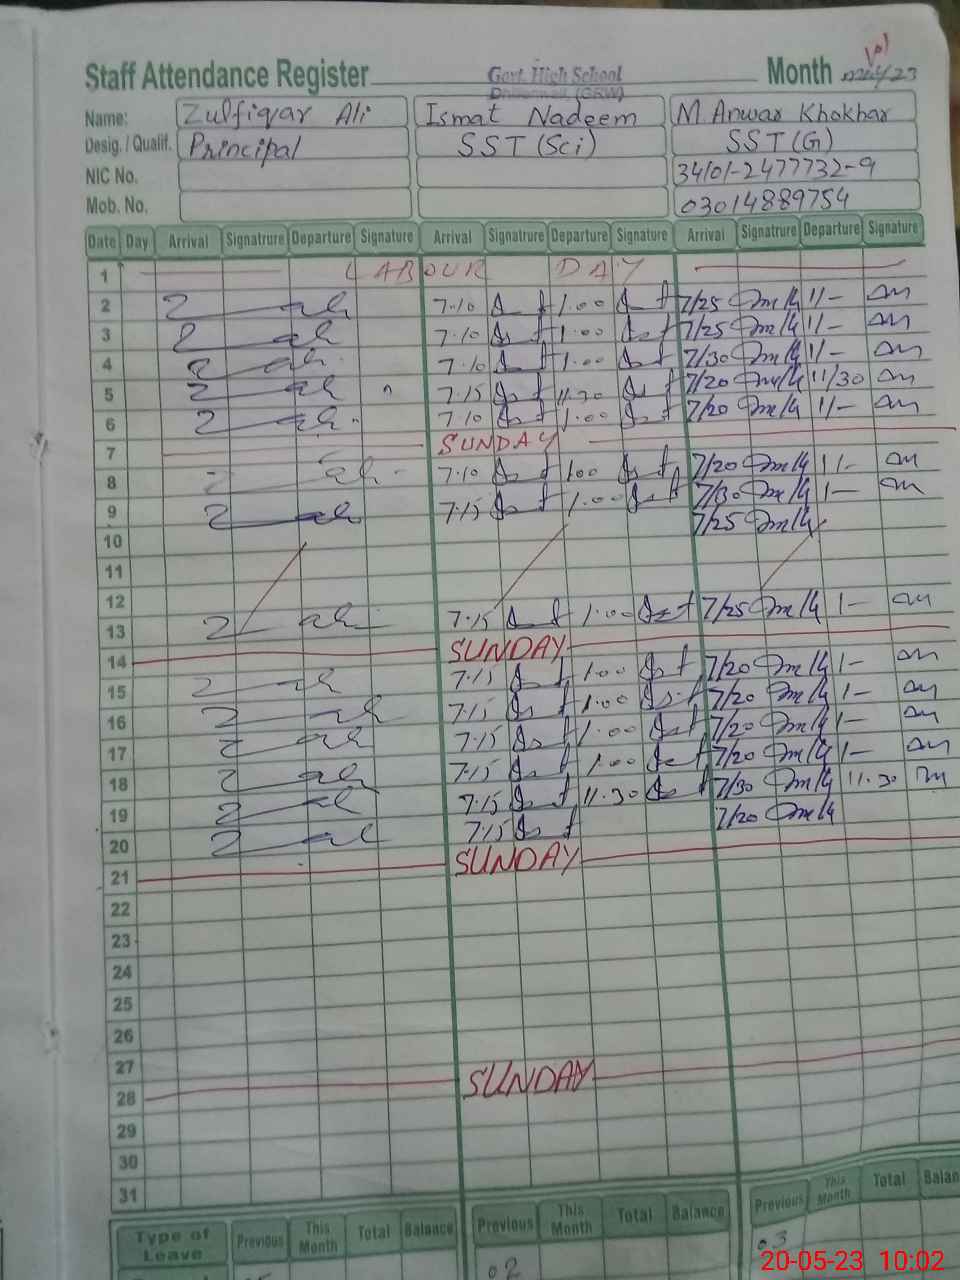 Staff Attendance Register Govt. High School Month May/23
Name: Zulfiqar Ali Ismat Nadeem M. Anwar Khokhar
Desig. / Qualif. Principal SST (Sci) SST (G)
NIC No. 34101-2477732-9
Mob. No. 03014889754
Date Day Arrival Signatrure Departure Signature Arrival Signatrure Departure Signature Arrival Signatrure Departure Signature
1 LABOUR DAY
2 7.10 1.00 7/25 1/-
3 7.10 1.00 7/25 1/-
4 7.10 1.00 7/30 1/-
5 7.15 11.30 7/20 11/30
6 7.10 1.00 7/20 1/-
7 SUNDAY
8 7.10 1.00 7/20 1/-
9 7.15 1.00 7/30 1-
10 7/25
11
12
13 7.15 1.00 7/25 1-
14 SUNDAY
15 7.15 1.00 7/20 1-
16 7.15 1.00 7/20 1-
17 7.15 1.00 7/20 1-
18 7.15 1.00 7/20 1-
19 7.15 11.30 7/30 11.30
20 7.15 7/20
21 SUNDAY
22
23
24
25
26
27
28 SUNDAY
29
30
31
Type of Leave Previous This Month Total Balance Previous This Month Total Balance Previous This Month Total
02 03
20-05-23 10:02